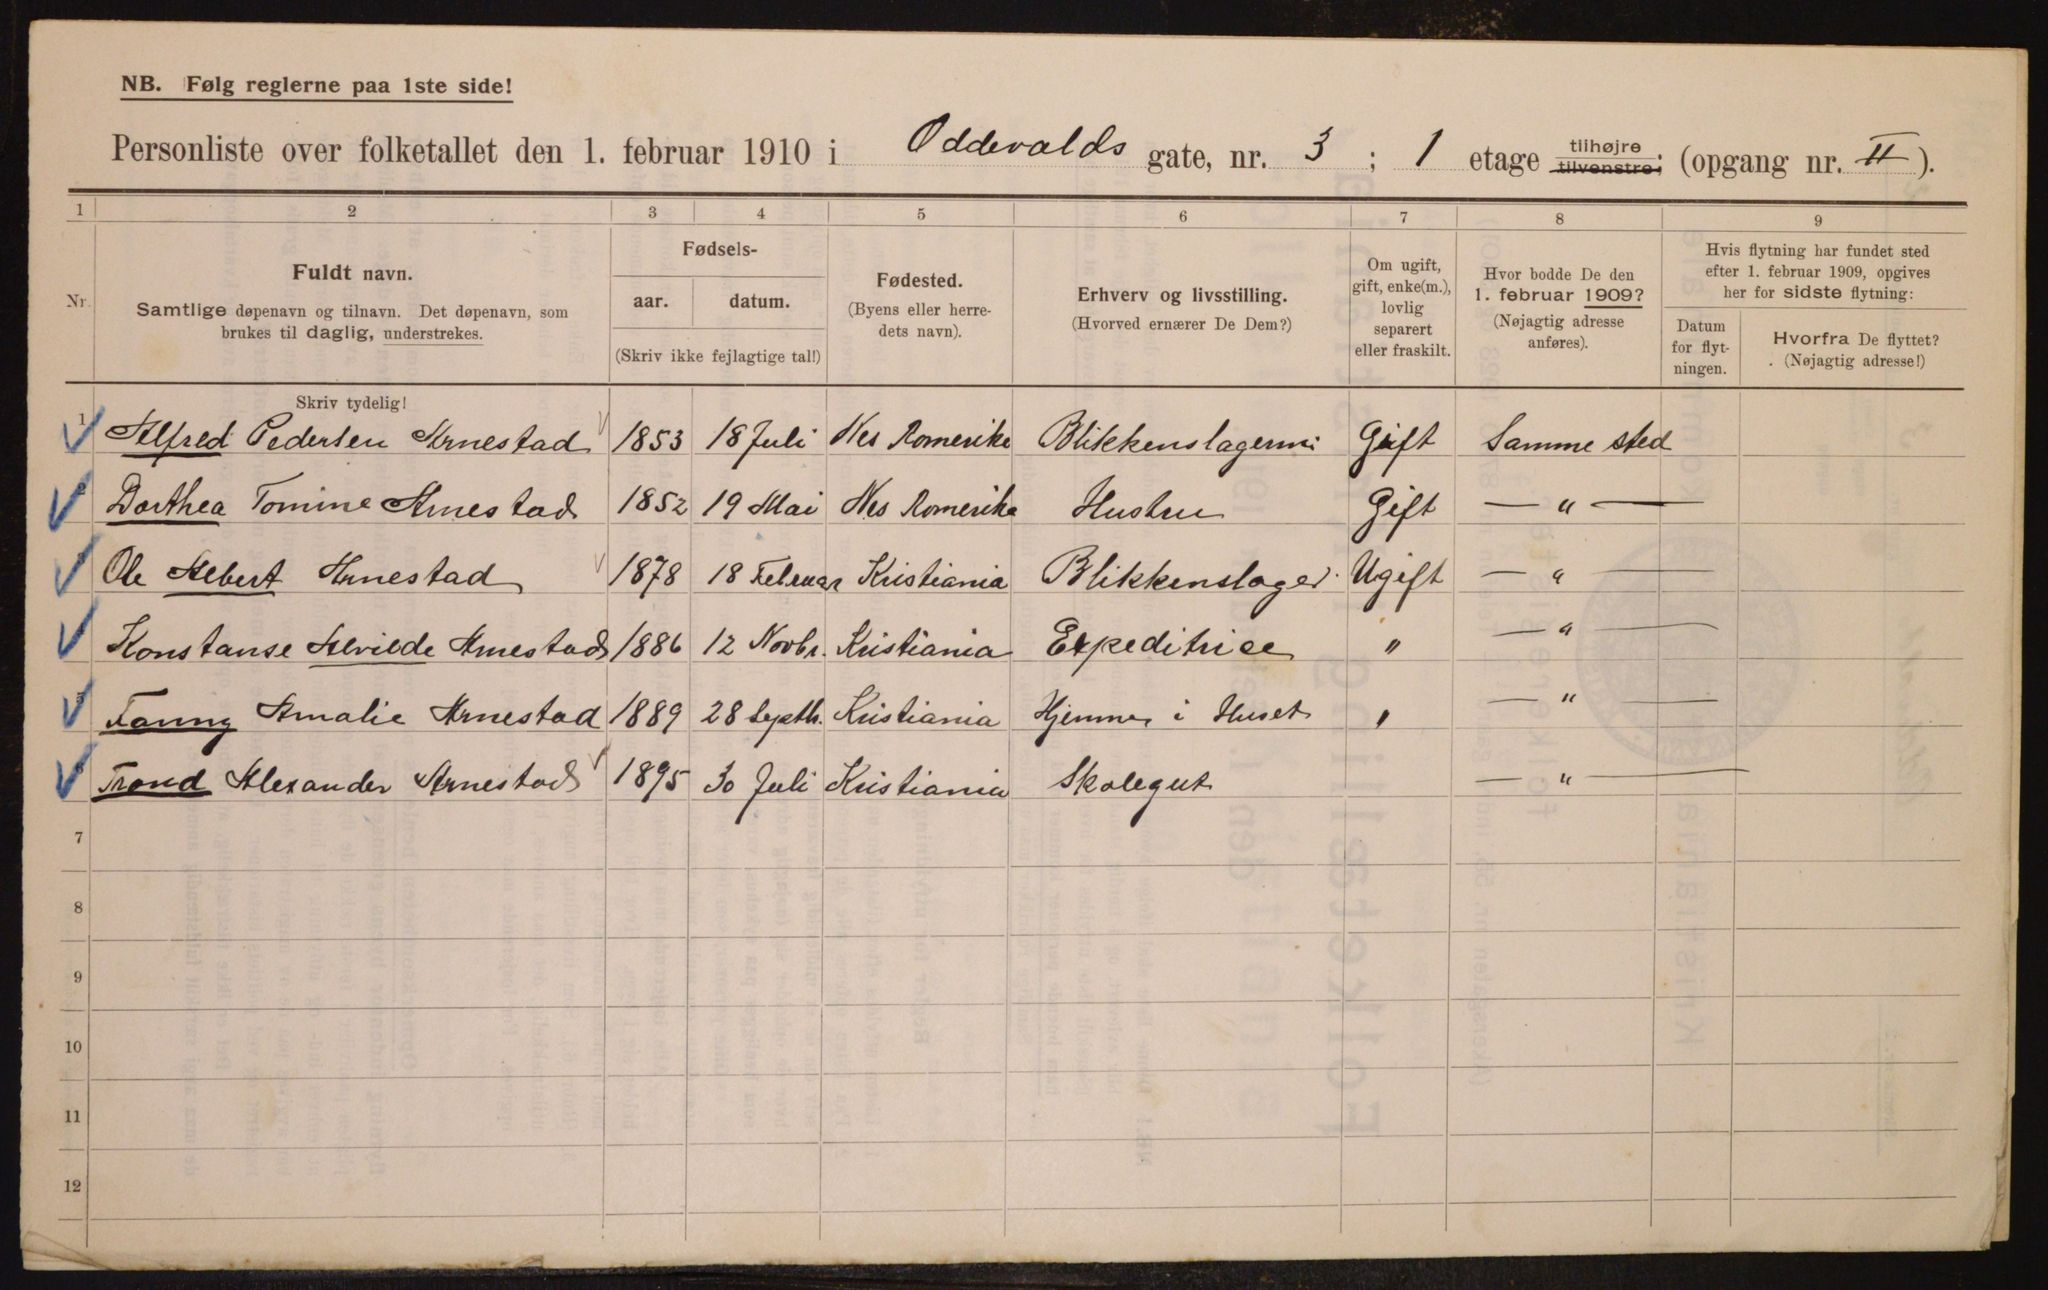 NB. Følg reglerne paa 1ste side!
Personliste over folketallet den 1. februar 1910 i Oddevalds gate, nr. 3 ; 1 etage tilhøjre tilvenstre; (opgang nr. II).
1 2 3 4 5 6 7 8 9
Nr.
Fuldt navn.
Samtlige døpenavn og tilnavn. Det døpenavn, som
brukes til daglig, understrekes.
Fødsels-
aar. datum.
(Skriv ikke fejlagtige tal!)
Fødested.
(Byens eller herre-
dets navn).
Erhverv og livsstilling.
(Hvorved ernærer De Dem?)
Om ugift,
gift, enke(m.),
lovlig
separert
eller fraskilt.
Hvor bodde De den
1. februar 1909?
(Nøjagtig adresse
anføres).
Hvis flytning har fundet sted
efter 1. februar 1909, opgives
her for sidste flytning:
Datum
for flyt-
ningen.
Hvorfra De flyttet?
(Nøjagtig adresse!)
Skriv tydelig!
1 Alfred Pedersen Arnestad 1853 18 Juli Nes Romerike Blikkenslagermi Gift Samme sted
2 Dorthea Tomine Arnestad 1852 19 Mai Nes Romerike Hustru Gift — " —
3 Ole Albert Arnestad 1878 18 Februar Kristiania Blikkenslager. Ugift — " —
Konstanse Alvilde Arnestad 1886 12 Novbr. Kristiania Expeditrice " — " —
5 Fanny Amalie Arnestad 1889 28 Septb. Kristiania Hjemme i Huset " — " —
6 Trond Alexander Arnestad 1895 30 Juli Kristiania Skolegut — " —
7
8
9
10
11
12